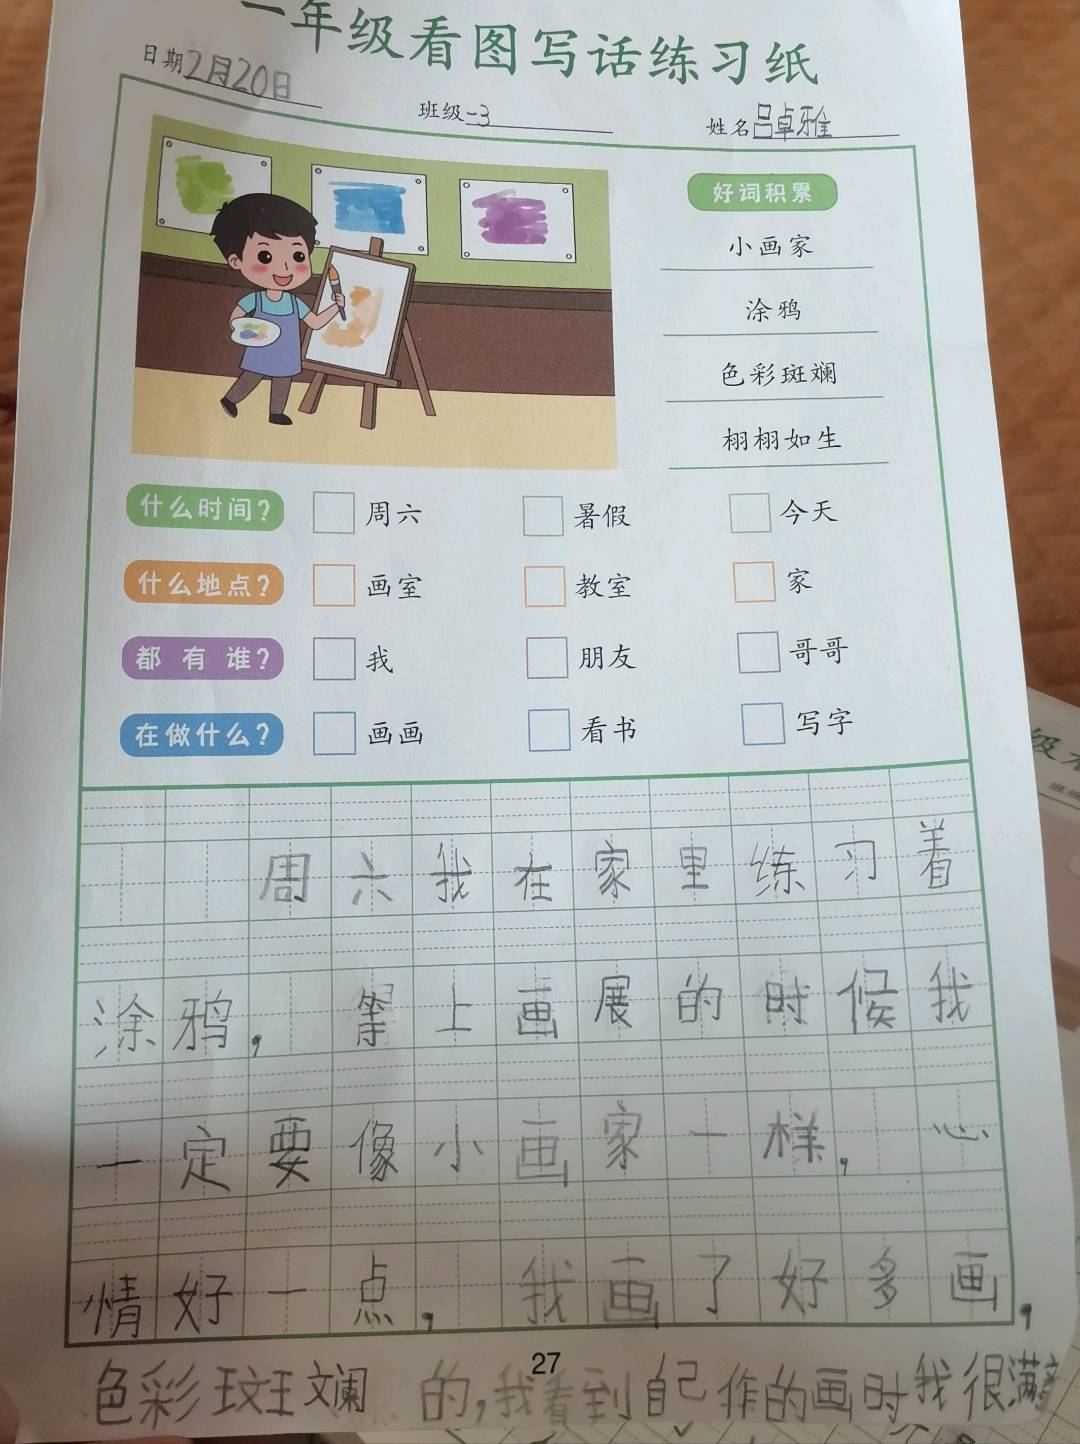 一年级看图写话练习纸
日期2月20日
班级一3
姓名吕卓雅
好词积累
小画家
涂鸦
色彩斑斓
栩栩如生
什么时间? 周六 暑假 今天
什么地点? 画室 教室 家
都有谁? 我 朋友 哥哥
在做什么? 画画 看书 写字
周六我在家里练习着
涂鸦，等上画展的时候我
一定要像小画家一样，心
情好一点，我画了好多画，
27
色彩斑斓的，我看到自己作的画时我很满